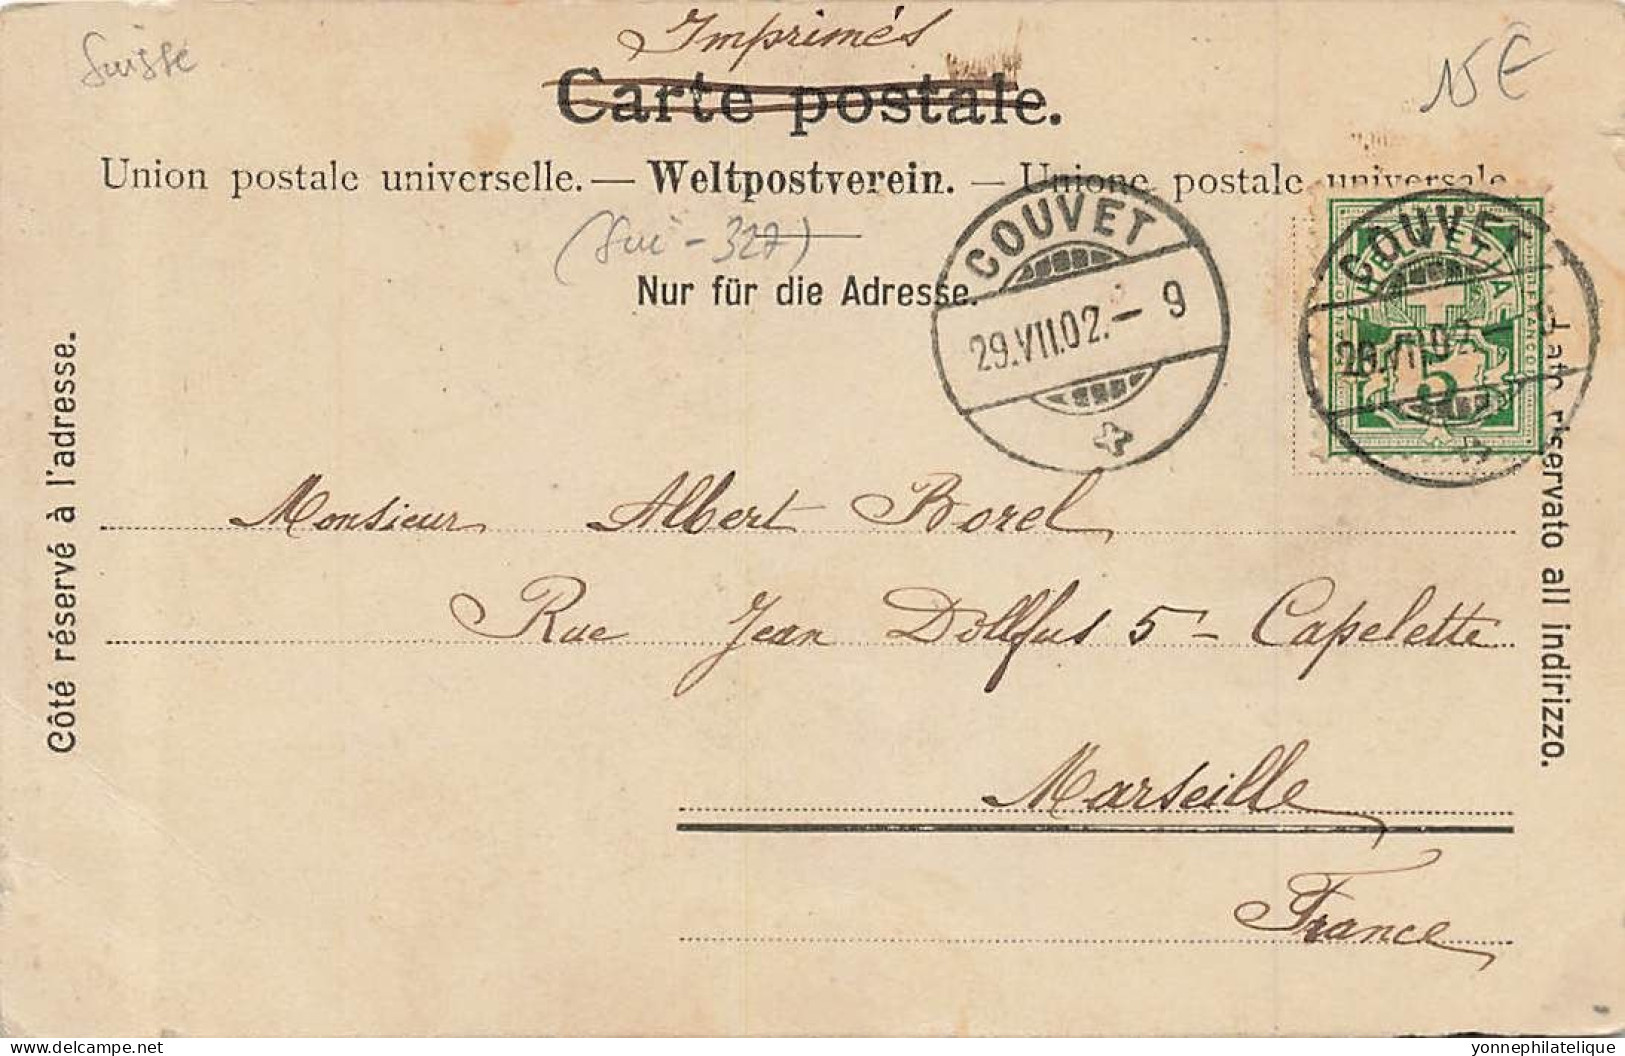 Suisse
Imprimés
15 €
Carte postale.
Union postale universelle. — Weltpostverein. — Unione postale universale
(Sui - 327)
Nur für die Adresse.
COUVET
29.VII.02. - 9
COUVET
29.VII.02. - 9
HELVETIA
FRANCO
5
Côté réservé à l'adresse.
Lato riservato all indirizzo.
Monsieur Albert Borel
Rue Jean Dollfus 5 - Capelette
Marseille
France
Delcampe.net
yonnephilatelique